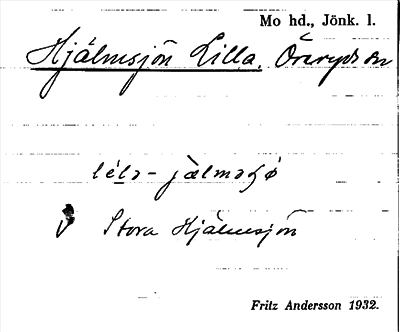 Mo hd., Jönk. l.
Hjälmsjön Lilla, Öreryds sn
Stora Hjälmsjön
Fritz Andersson 1932.